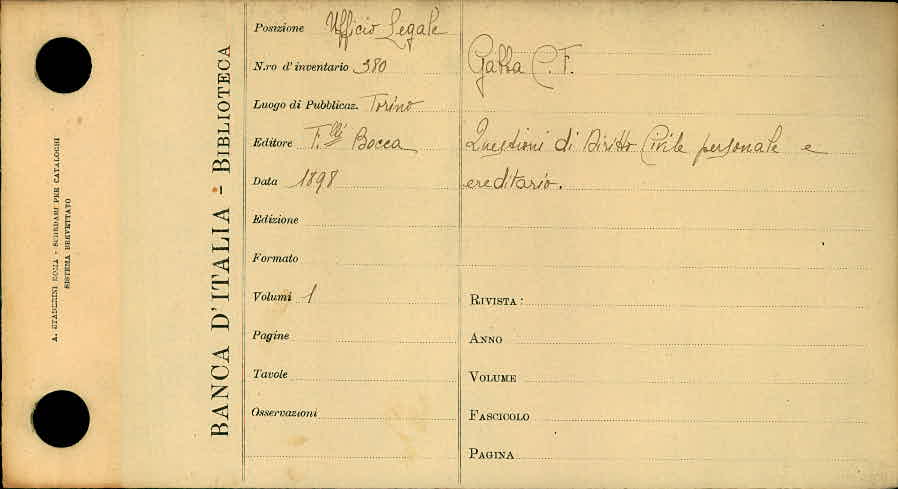 A. STASCHINI ROMA - SCHEDARI PER CATALOGHI
SISTEMA BREVETTATO
BANCA D'ITALIA - BIBLIOTECA
Posizione Ufficio Legale
N.ro d'inventario 380
Luogo di Pubblicaz. Torino
Editore F.lli Bocca
Data 1898
Edizione
Formato
Volumi 1
Pagine
Tavole
Osservazioni
Gabba C. F.
Questioni di Diritto Civile personale e
ereditario.
RIVISTA:
ANNO
VOLUME
FASCICOLO
PAGINA